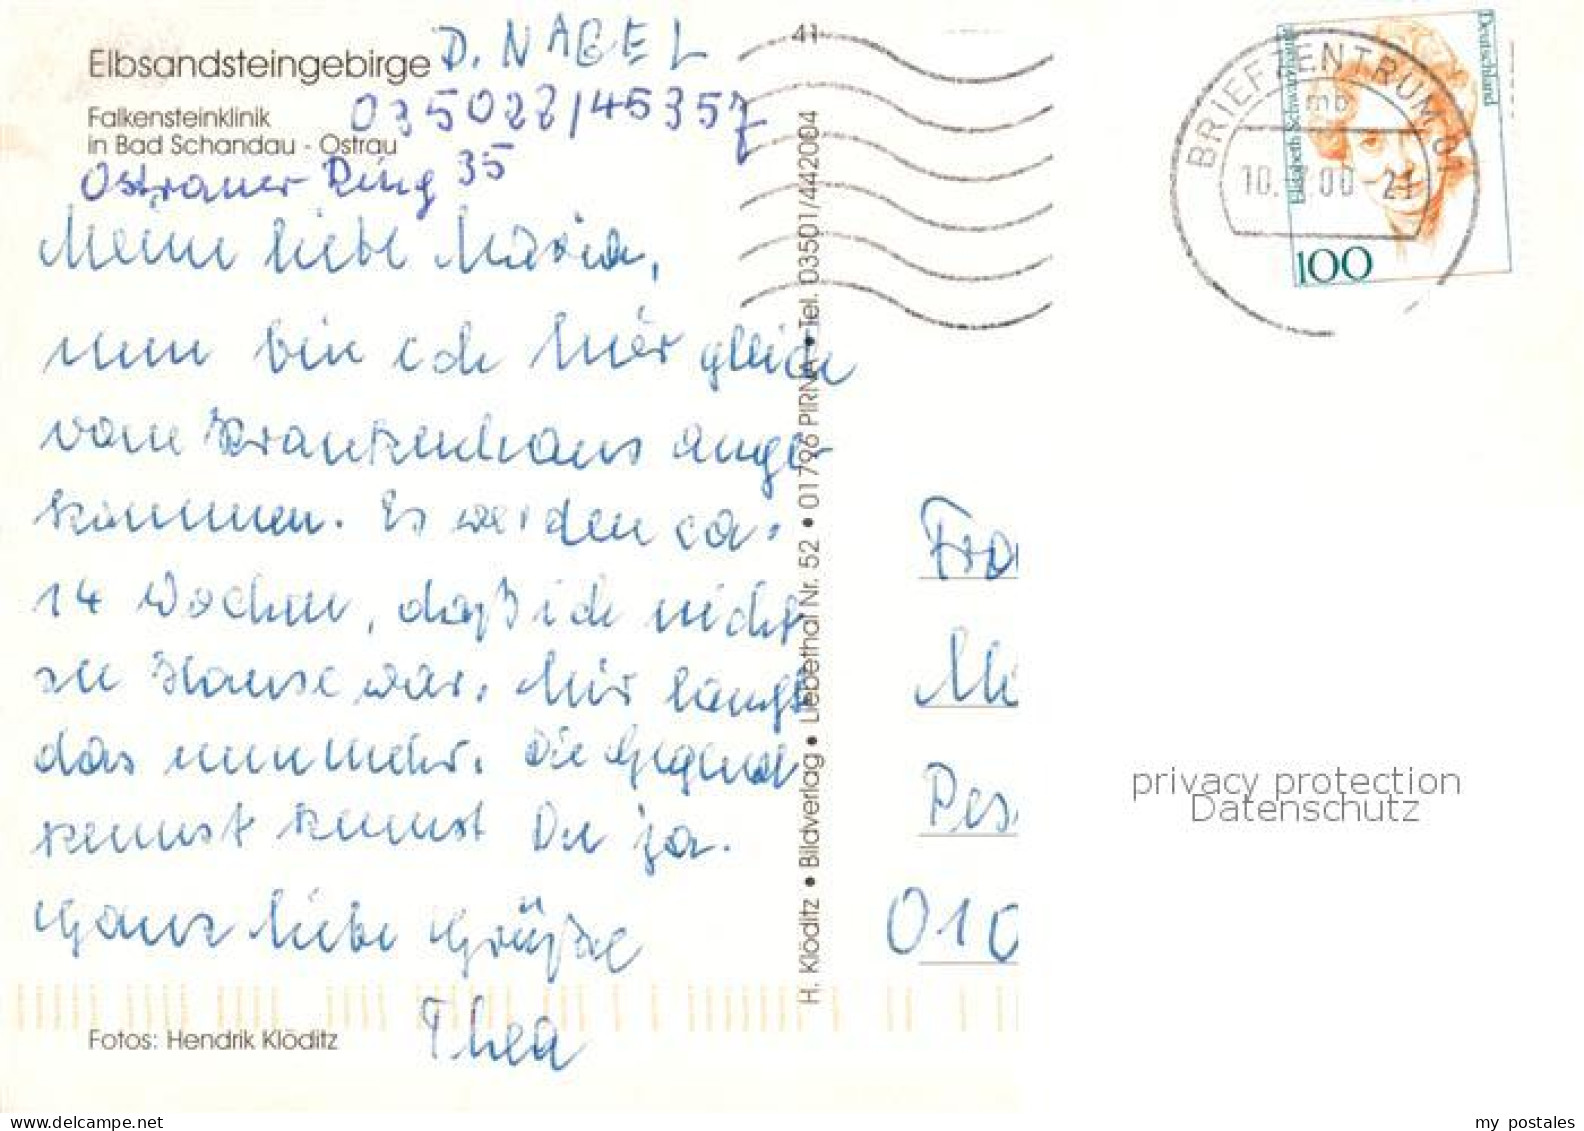 Elbsandsteingebirge
D. NAGEL
Falkensteinklinik
in Bad Schandau - Ostrau
035022/45357
Ostrauer Ring 35
Meine liebe Maria,
nun bin ich hier gleich
vom Krankenhaus ange-
kommen. Es werden ca.
14 Wochen, daß ich nicht
zu Hause war. Mir langt
das nunmehr. Die Gegend
kennst kennst Du ja.
Ganz liebe Grüße
Thea
Fotos: Hendrik Klöditz
H. Klöditz • Bildverlag • Liebethal Nr. 52 • 01796 PIRNA • Tel. 03501/442004
41
BRIEFZENTRUM 01
mb
10. 7.00 - 21
Deutschland
Elisabeth Schwarzhaupt
100
Fra
Mi
Pes
010
privacy protection
Datenschutz
my postales